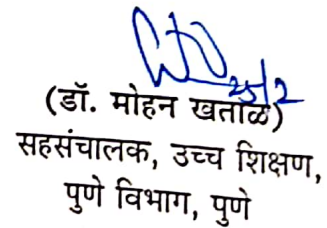 25/2
(डॉ. मोहन खताळ)
सहसंचालक, उच्च शिक्षण,
पुणे विभाग, पुणे